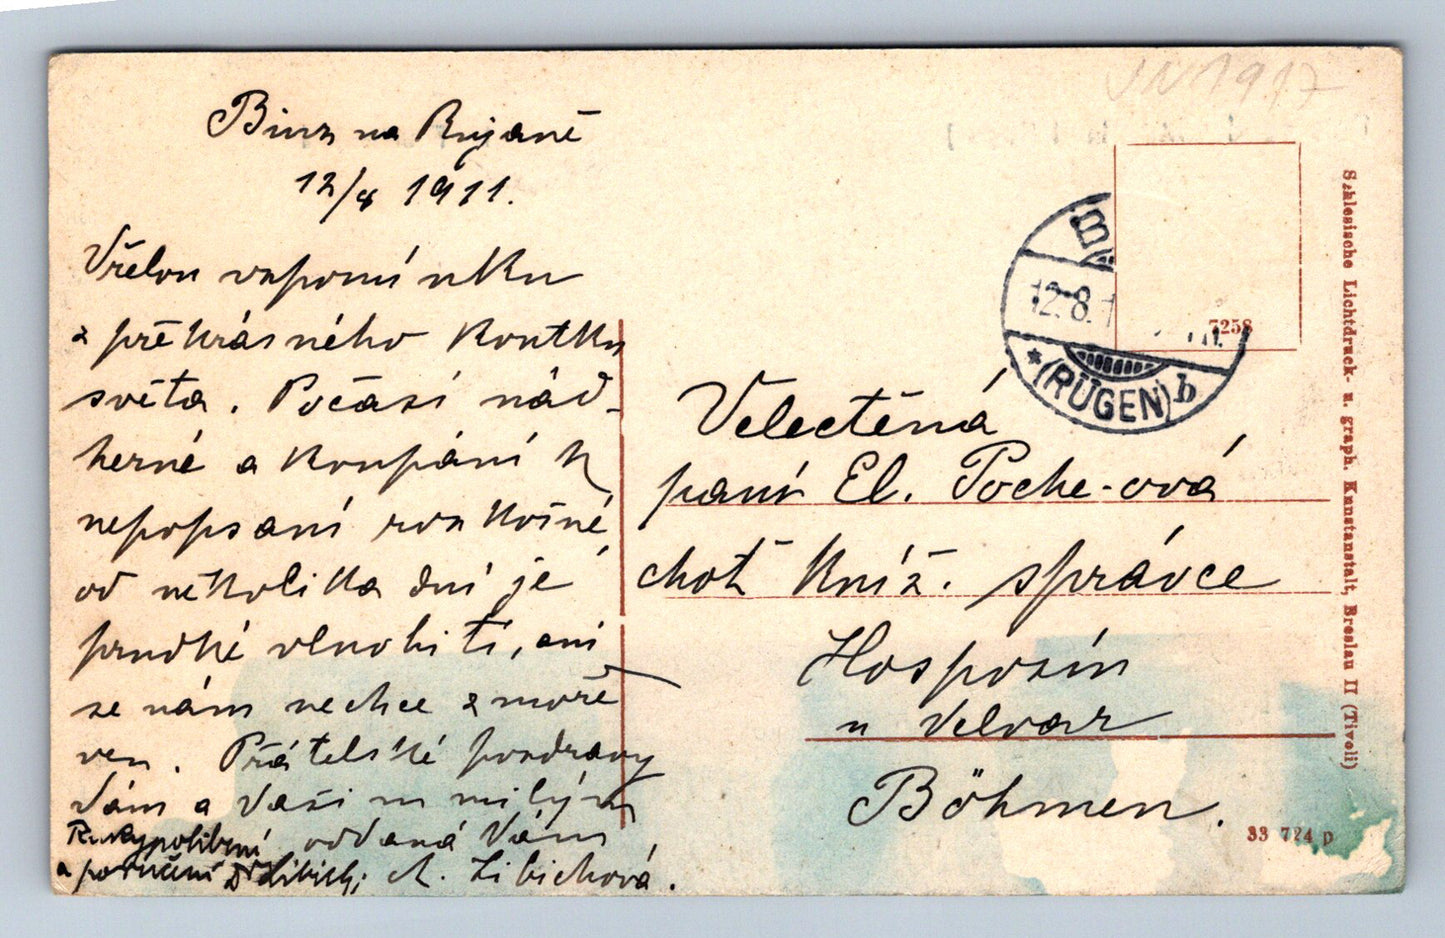 Binz na Rujaně
12/8 1911.
Vřelou vzpomínku
z překrásného koutku
světa. Počasí nád-
herné a koupání k
nepopsaní rozkošné,
od několika dní je
prudké vlnobití, ani
se nám nechce z moře
ven. Přátelské pozdravy
Vám a Vašim milým
oddaná Vám
A. Libichová.
Rukypolíbení
a poručení Dr Libich
JN 1917
7258
12.8.1
(RÜGEN) b
Velectěná
paní El. Poche-ová
choť kníž. správce
Hospozín
u Velvar
Böhmen.
Schlesische Lichtdruck- u. graph. Kunstanstalt, Breslau II (Tivoli)
33 724 D